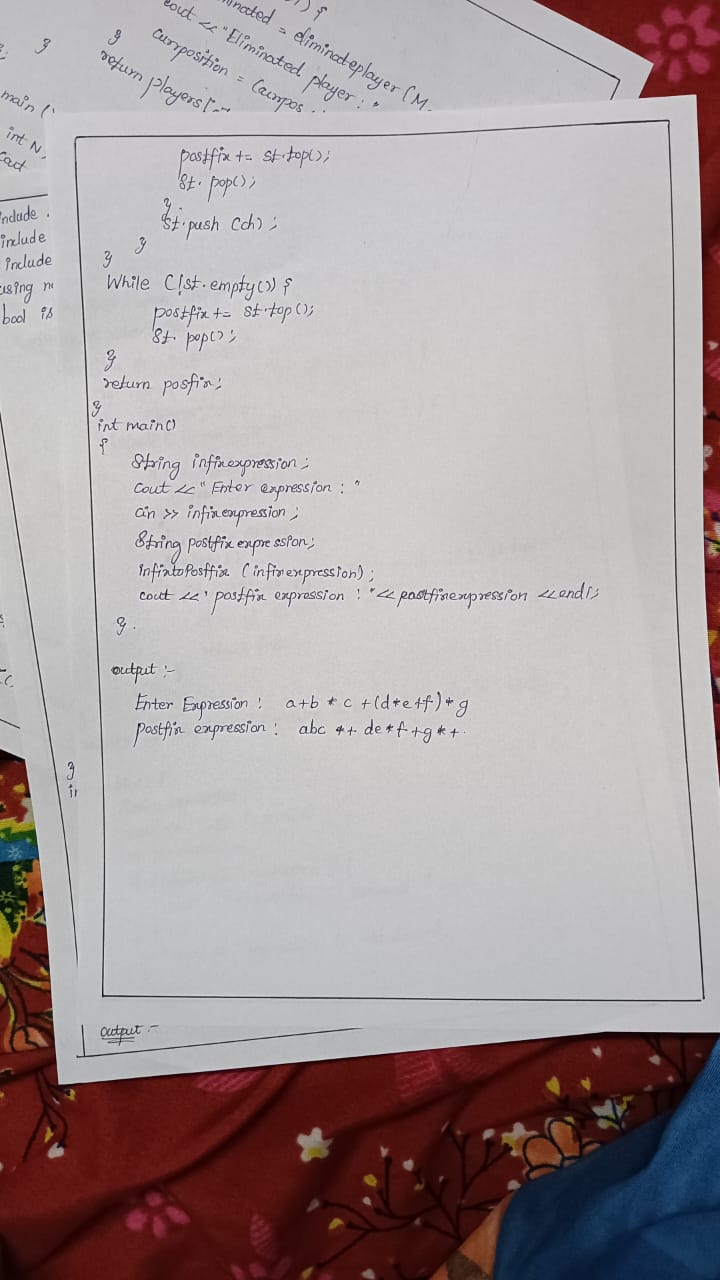 eliminated = eliminateplayer (M
cout << "Eliminated player : "
}
currposition = (currpos
}
return players[
main (
int N
include
include
include
using n
bool is
postfix += st.top();
St. pop();
}
st.push (ch);
}
}
While (!st.empty()) {
postfix += st.top();
St. pop();
}
return posfix;
}
int main()
{
String infixexpression;
cout << " Enter expression : "
cin >> infixexpression;
String postfix expression;
infixtoPostfix (infixexpression);
cout << ' postfix expression : "<< postfixexpression <<endl;
}.
output :-
Enter Expression : a+b * c +(d*e+f)*g
postfix expression : abc *+ de*f+g*+.
}
output :-